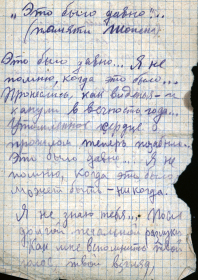 „Это было давно"...
(памяти Шопена)
Это было давно... Я не
помню, когда это было...
Пронеслись, как виденья – и
канули в вечность года...
Утомлённое сердце о
прошлом теперь позабыло...
Это было давно... Я не
помню, когда это было,
Может быть – никогда...
Я не знаю тебя... После
долгой печальной разлуки
Как мне вспомнить твой
голос, твой взгляд,